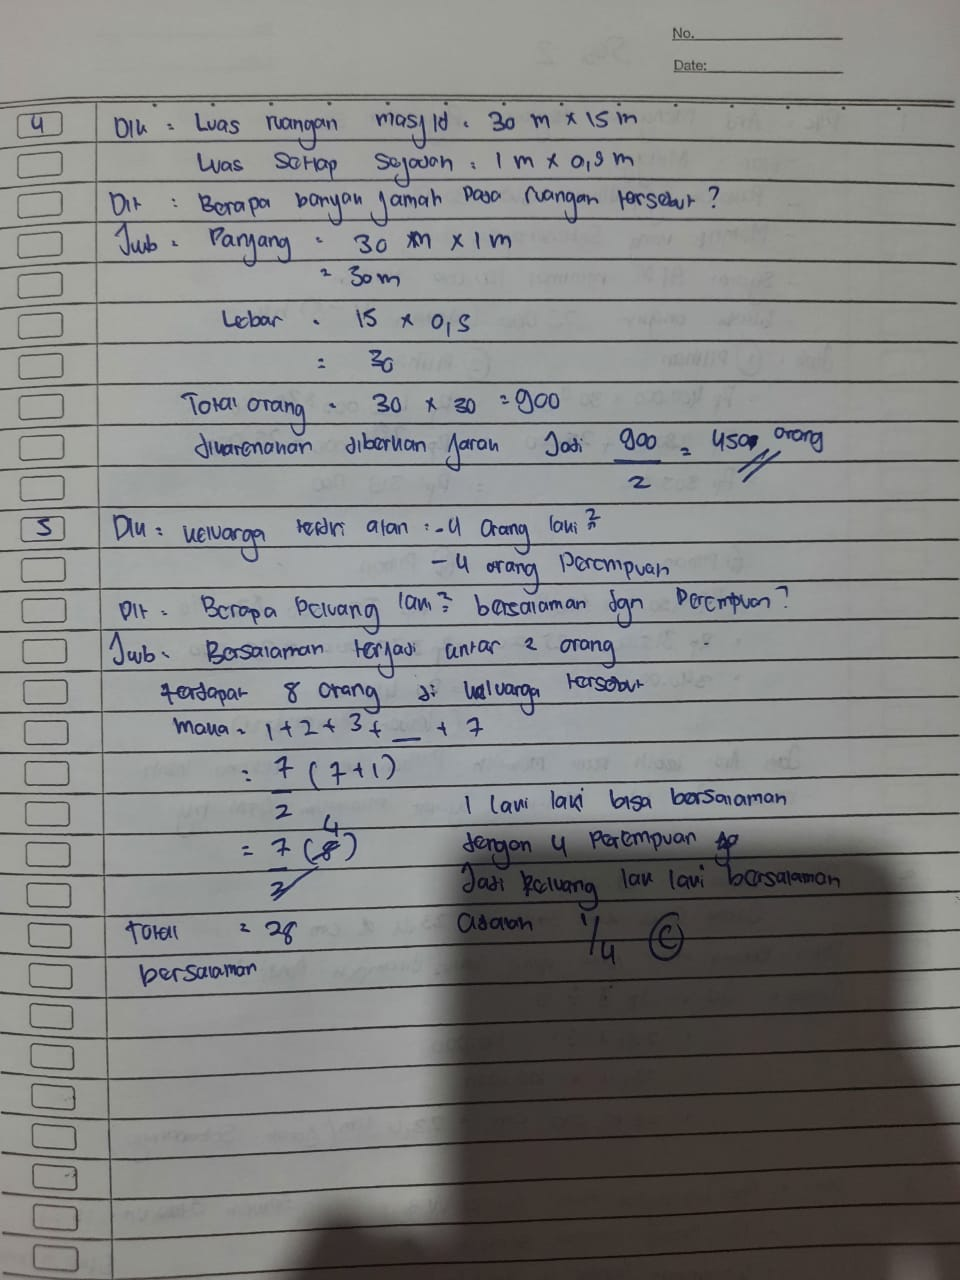 No.
Date:
4 Dik = Luas ruangan masjid = 30 m × 15 m
Luas setiap sejadah = 1 m × 0,5 m
Dit : Berapa banyak jamah pada ruangan tersebut ?
Jwb = Panjang = 30 m × 1 m
= 30 m
Lebar = 15 × 0,5
= 30
Total orang = 30 × 30 = 900
dikarenakan diberikan jarak Jadi 900/2 = 450 orang
5 Dik = keluarga terdri atan : - 4 orang laki ²
- 4 orang perempuan
Dit = Berapa Peluang laki ² bersalaman dgn Perempuan ?
Jwb = Bersalaman terjadi antar 2 orang
terdapat 8 orang di keluarga tersebut
maka = 1 + 2 + 3 + __ + 7
= 7/2 (7+1)
1 laki laki bisa bersalaman
= 7/2 (8) 4 dengan 4 perempuan
Jadi peluang laki laki bersalaman
Total = 28 adalah 1/4 Ⓒ
bersalaman